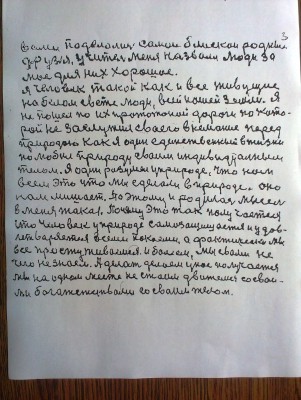 3
вами подводил самой близкой родней
друзья, учителя меня назвали люди за
мое для них хорошее.
Я человек такой как и все живущие
на белом свете люди, всей нашей земли. Я
не пошел по их протоптаной дороги по кото-
рой не заслужил своего внимание перед
природою как я один единственный в жизни
полюбил природу своим индивидуалным
телом. Я один раздумал у природе, что нам
всем это что мы сделали в природе. оно
нам мишает. По этому и родилася мысел
в меня такая, почему это так получается
что человек у природе самозащищается и удов-
летваряется всеми хокоеми, а фактически мы
все простуживаемся и болеем, мы своли не
чего не знаем. А делат делаем у нас получается
мы на одном месте не стаем движемся со свои-
ми богажествами со своим телом.